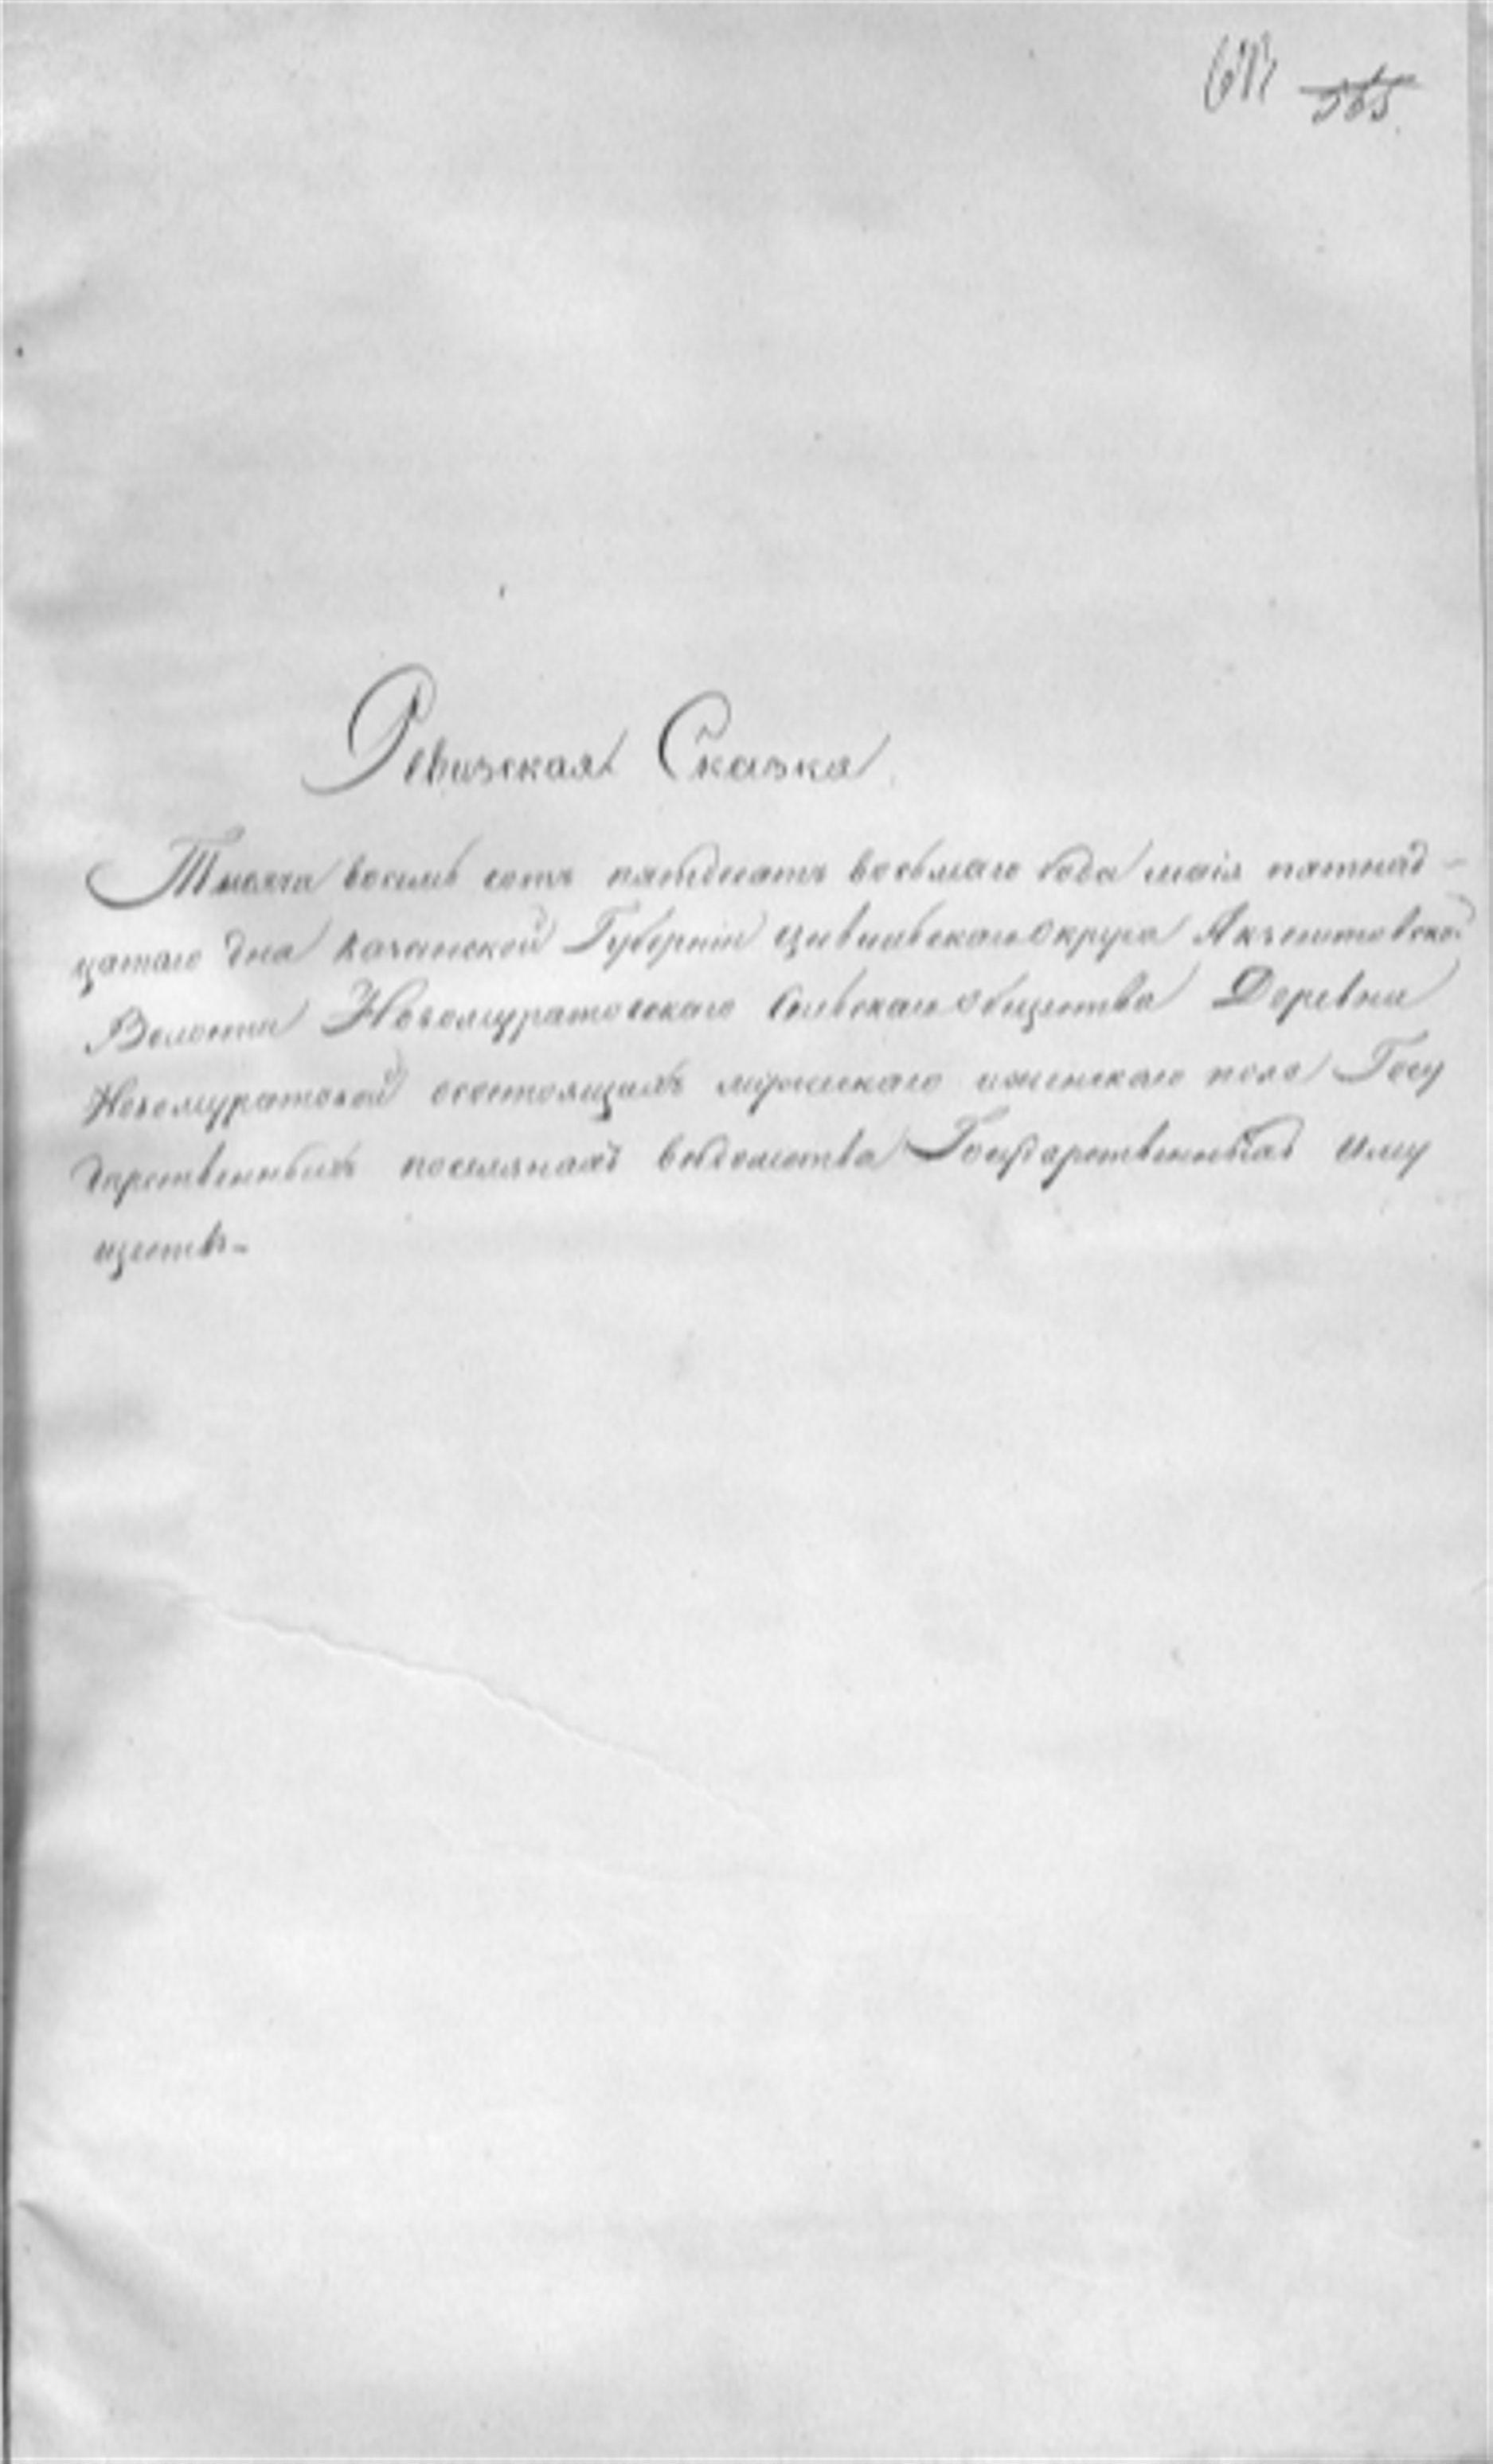 565
Ревизская Сказка
Тысяча восемь сотъ пятдесятъ восьмаго года маія пятнад-
цатаго дня Казанской Губерніи Цивильскаго округа Акзегитовской
Волости Новомуратовскаго Сельскаго общества Деревни
Новомуратовой осостоящихъ мужескаго иженскаго пола Госу
дарственныхъ поселянахъ ведомства Государственныхъ Иму
ществъ-